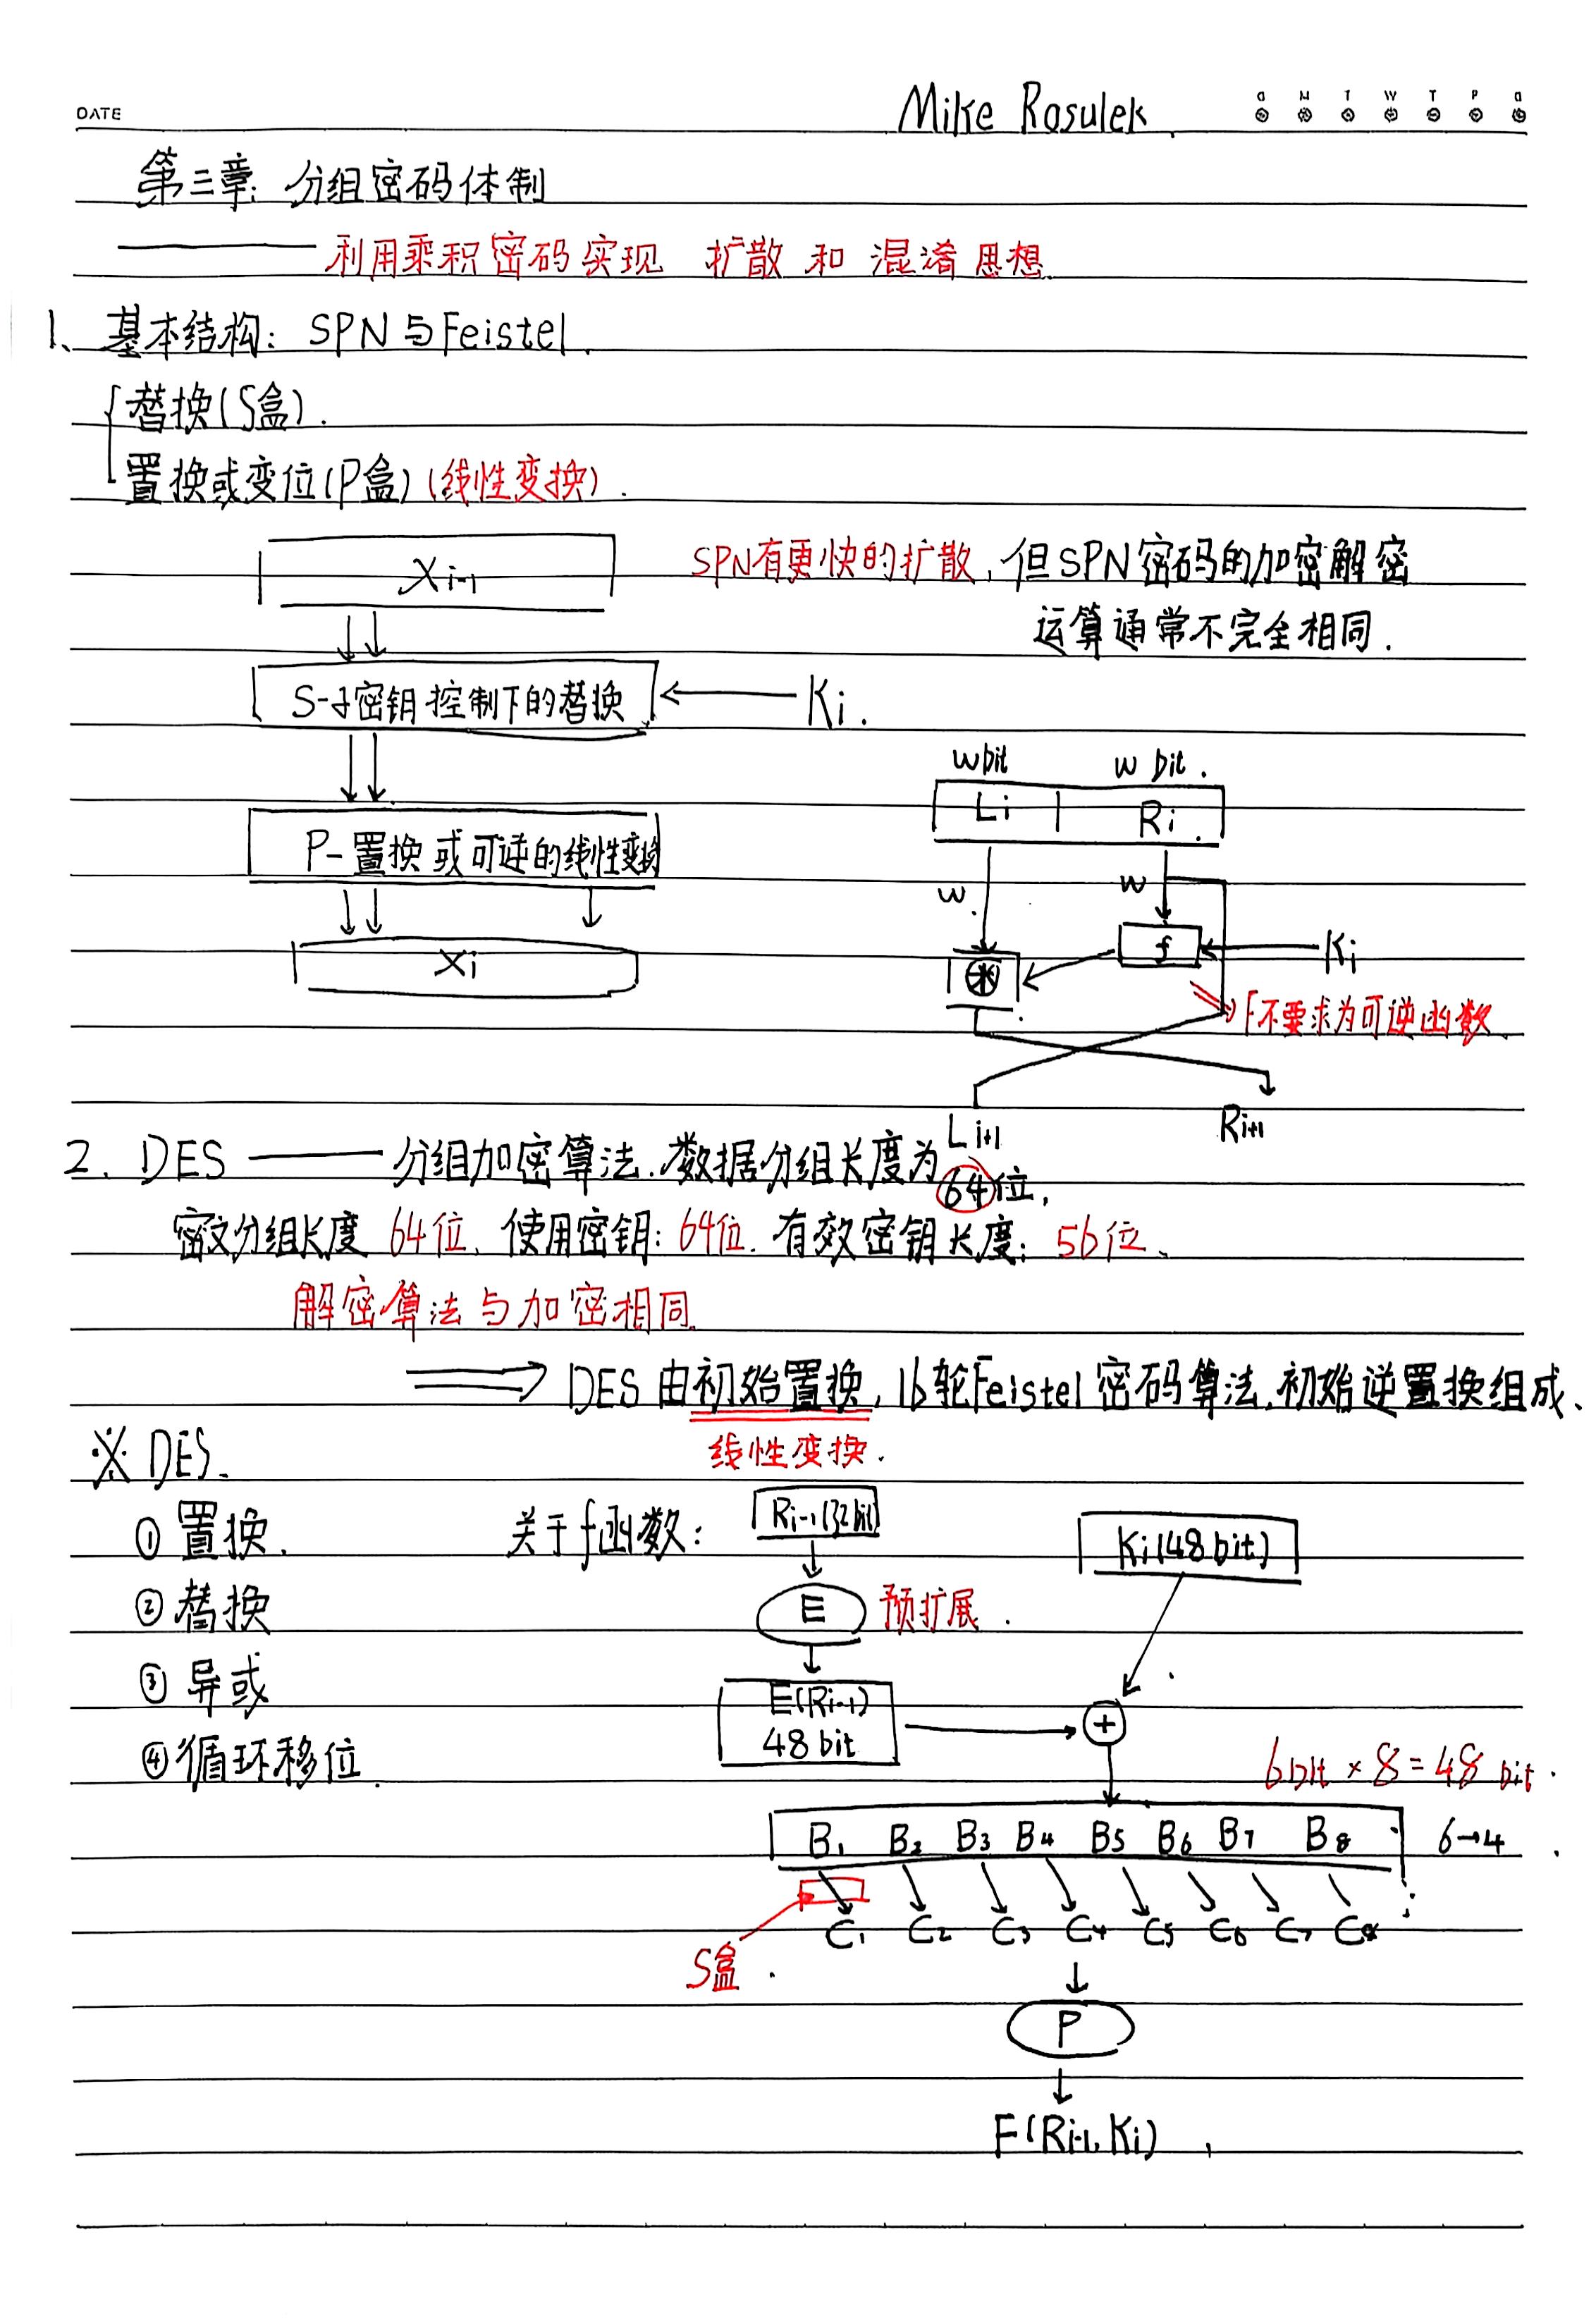 DATE
Mike Rosulek
第三章: 分组密码体制
—— 利用乘积密码实现 扩散 和 混淆 思想.
1、基本结构: SPN与Feistel.
替换(S盒).
置换或变位(P盒)(线性变换).
Xi-1
SPN有更快的扩散, 但SPN密码的加密解密
运算通常不完全相同.
S-子密钥控制下的替换
Ki.
P-置换或可逆的线性变换
Xi
wbit w bit.
Li Ri
w. w
f
Ki
⇒F不要求为可逆函数
Li+1 Ri+1
2、DES —— 分组加密算法.数据分组长度为64位,
密文分组长度 64位, 使用密钥: 64位. 有效密钥长度: 56位、
解密算法与加密相同.
⟹ DES由初始置换, 16轮Feistel密码算法,初始逆置换组成、
线性变换.
※ DES.
① 置换.
② 替换
③ 异或
④ 循环移位.
关于f函数:
Ri-1(32bit)
Ki(48bit)
E 预扩展.
E(Ri-1)
48 bit
+
6bit × 8 = 48 bit.
B1 B2 B3 B4 B5 B6 B7 B8 6→4
C1 C2 C3 C4 C5 C6 C7 C8
S盒.
P
F(Ri-1, Ki)